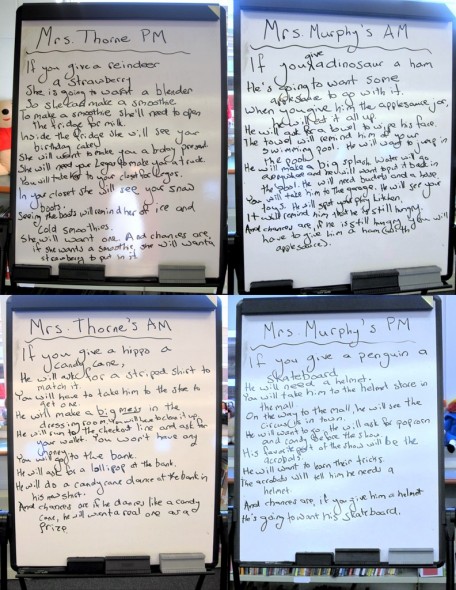 Mrs. Thorne PM
If you give a reindeer
a strawberry
She is going to want a blender
so she can make a smoothie.
To make a smoothie she'll need to open
the fridge for milk.
Inside the fridge she will see your
birthday cake!
She will want to make you a birthday present.
She will need your Legos to make you a truck.
You will take her to your closet for Legos.
In your closet she will see your snow
boots.
Seeing the boots will remind her of ice and
cold smoothies.
She will want one. And chances are,
if she wants a smoothie, she will want a
strawberry to put in it.
Mrs. Murphy's AM
If you give a dinosaur a ham
He's going to want some
applesauce to go with it.
When you give him the applesauce jar,
he will eat it all up.
He will ask for a towel to wipe his face.
The towel will remind him of your
swimming pool. He will want to jump in
the pool.
He will make a big splash. Water will go
everywhere and he will want to put it back in
the pool. He will need buckets and a hose.
You will take him to the garage. He will see your
toys. He will get your play kitchen.
It will remind him that he is still hungry.
And chances are, if he is still hungry, you will
have to give him a ham (with
applesauce).
Mrs. Thorne's AM
If you give a hippo a
candy cane,
He will ask for a striped shirt to
match it.
You will have to take him to the store to
get one.
He will make a big mess in the
dressing room. You will have to clean it up.
He will run to the checkout line and ask for
your wallet. You won't have any
money.
You will go to the bank.
He will ask for a lollipop at the bank.
He will do a candy cane dance at the bank in
his new shirt.
And chances are if he dances like a candy
cane, he will want a real one as a
prize.
Mrs. Murphy's PM
If you give a penguin a
skateboard
He will need a helmet.
You will take him to the helmet store in
the mall.
On the way to the mall, he will see the
circus is in town.
He will want to go so he will ask for popcorn
and candy before the show.
His favorite part of the show will be the
acrobats.
He will want to learn their tricks.
The acrobats will tell him he needs a
helmet.
And chances are, if you give him a helmet
He's going to want his skateboard.